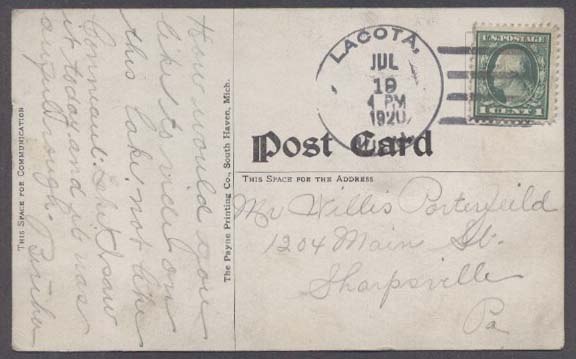 THIS SPACE FOR COMMUNICATION
How would you
like to ride on
this lake, not like
Conneaut Lake. I saw
it today and it was
awful rough.
Bertha
The Payne Printing Co., South Haven, Mich.
LACOTA,
JUL
19
1 PM
1920
MICH.
U.S. POSTAGE
1 CENT 1
Post Card
THIS SPACE FOR THE ADDRESS
Mr Willis Porterfield
1204 Main St.
Sharpsville
Pa